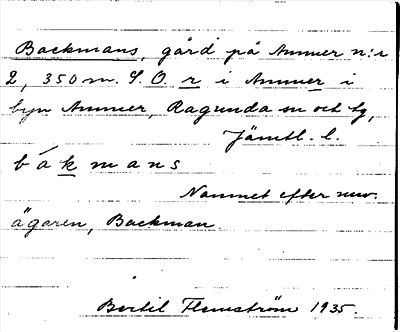 Backmans, gård på Ammer n:r
2, 350 m. S. O. r i Ammer i
byn Ammer, Ragunda sn och tg,
Jämtl. l.
bákmans
Namnet efter nuv.
ägaren, Backman.
Bertil Flemström 1935.